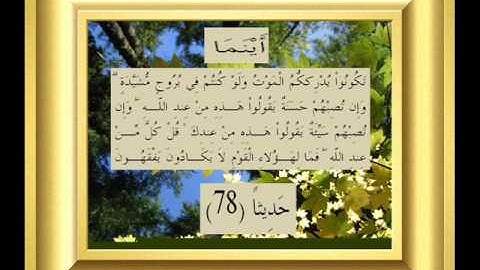 أَيْنَمَا
تَكُونُواْ يُدْرِككُّمُ الْمَوْتُ وَلَوْ كُنتُمْ فِي بُرُوجٍ مُّشَيَّدَةٍ ۗ
وَإِن تُصِبْهُمْ حَسَنَةٌ يَقُولُواْ هَذِهِ مِنْ عِندِ اللّهِ ۖ وَإِن
تُصِبْهُمْ سَيِّئَةٌ يَقُولُواْ هَذِهِ مِنْ عِندِكَ ۚ قُلْ كُلٌّ مِّنْ
عِندِ اللّهِ ۖ فَمَا لِهَؤُلاء الْقَوْمِ لاَ يَكَادُونَ يَفْقَهُونَ
حَدِيثاً (78)